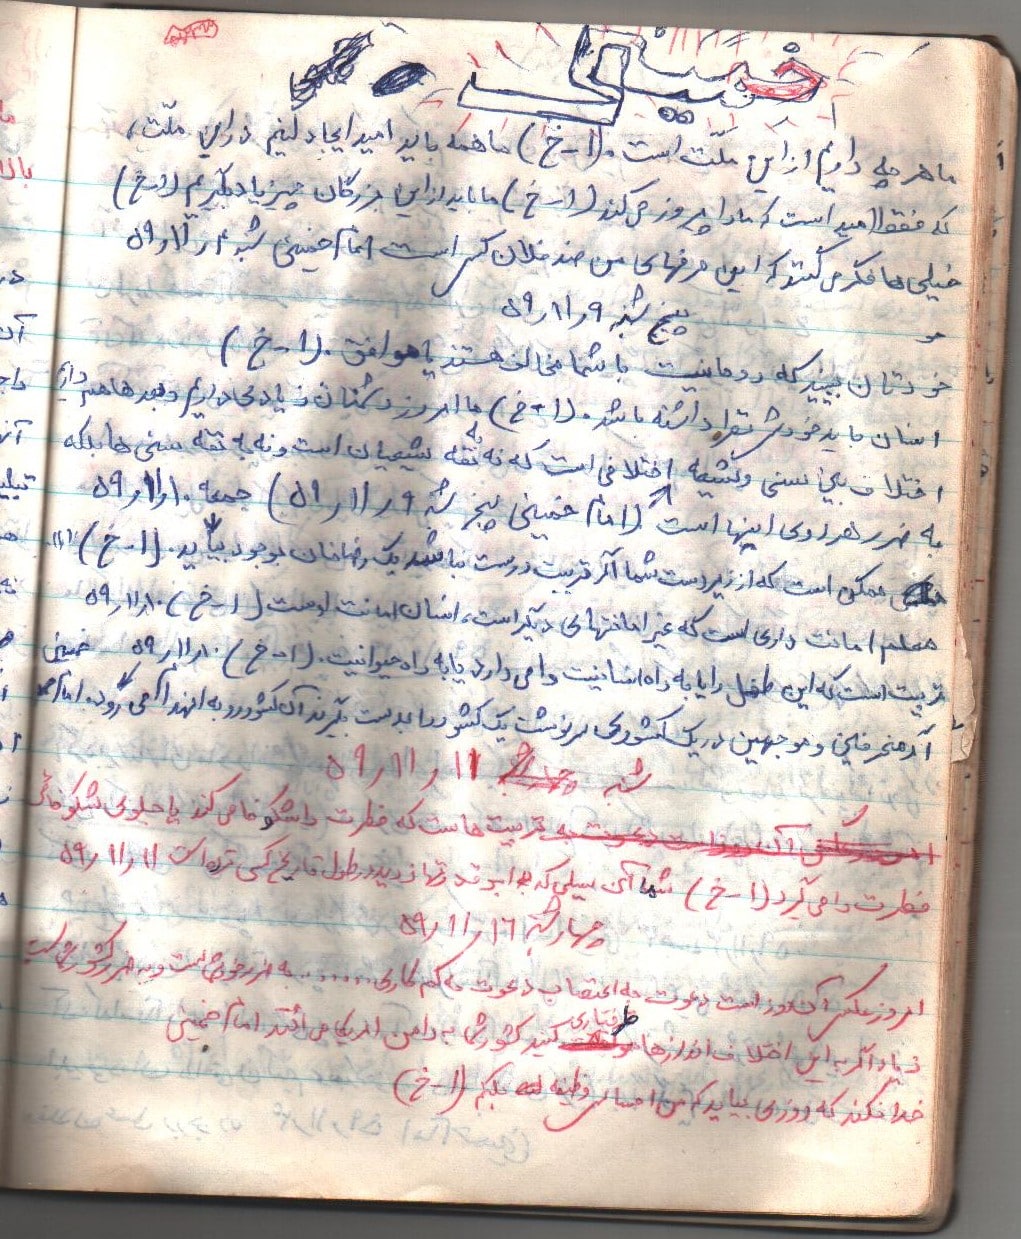 خمینی
ما هر چه داریم از این ملّت است. (ا-خ) ما همه باید امید ایجاد کنیم در این ملّت،
که فقط امید است که ما را پیروز می‌کند (ا-خ) ما باید از این بزرگان چیز یاد بگیریم (ا-خ)
خیلی ها فکر می کنند که این حرفهای من ضد فلان کس است امام خمینی
پنج شنبه ۹ر۱۱ر۵۹
خودتان ببینید که روحانیت با شما مخالف هستند یا موافق. (ا-خ)
انسان باید خودش داشته باشد. (ا-خ) ما امروز دشمنان زیادی داریم و بعدها هم داریم
اختلاف بین سنی و شیعه اختلافی است که نه به نفع شیعیان است و نه به نفع سنی ها بلکه
به ضرر هر دوی اینها است (امام خمینی پنج شنبه ۹ر۱۱ر۵۹) جمعه ۱۰ر۱۱ر۵۹
ممکن است که از زیر دست شما اگر تربیت درست نباشد یک رضاخان بوجود بیاید. (ا-خ)
معلم امانت داری است که غیر امانتهای دیگر است، انسان امانت اوست (ا-خ) ۱۰ر۱۱ر۵۹
تربیت است که این طفل را یا به راه انسانیت وا می دارد یا به راه حیوانیت. (ا-خ) ۱۰ر۱۱ر۵۹
اگر منحرفین و معوجین در یک کشوری سرنوشت یک کشور را بدست بگیرند آن کشور رو به انهدام می رود. امام خمینی
شنبه ۱۱ر۱۱ر۵۹
تربیت هاست که فطرت را شکوفا می کند یا جلوی شکوفائی
فطرت را می گیرد (ا-خ) شما آن سیلی که خوردید در طول تاریخ کی خورده است ۱۱ر۱۱ر۵۹
چهارشنبه ۱۶ر۱۱ر۵۹
امروز عکس آن روز است دعوت به اعتصاب دعوت به کم کاری ..... به ضرر خودش است و به ضرر کشور
فردا اگر به این اختلاف اندازها طرفداری کنید کشور شما به دامن امریکا می افتد امام خمینی
خدا نکند که روزی بیاید که من احساس وظیفه بکنم (ا-خ)